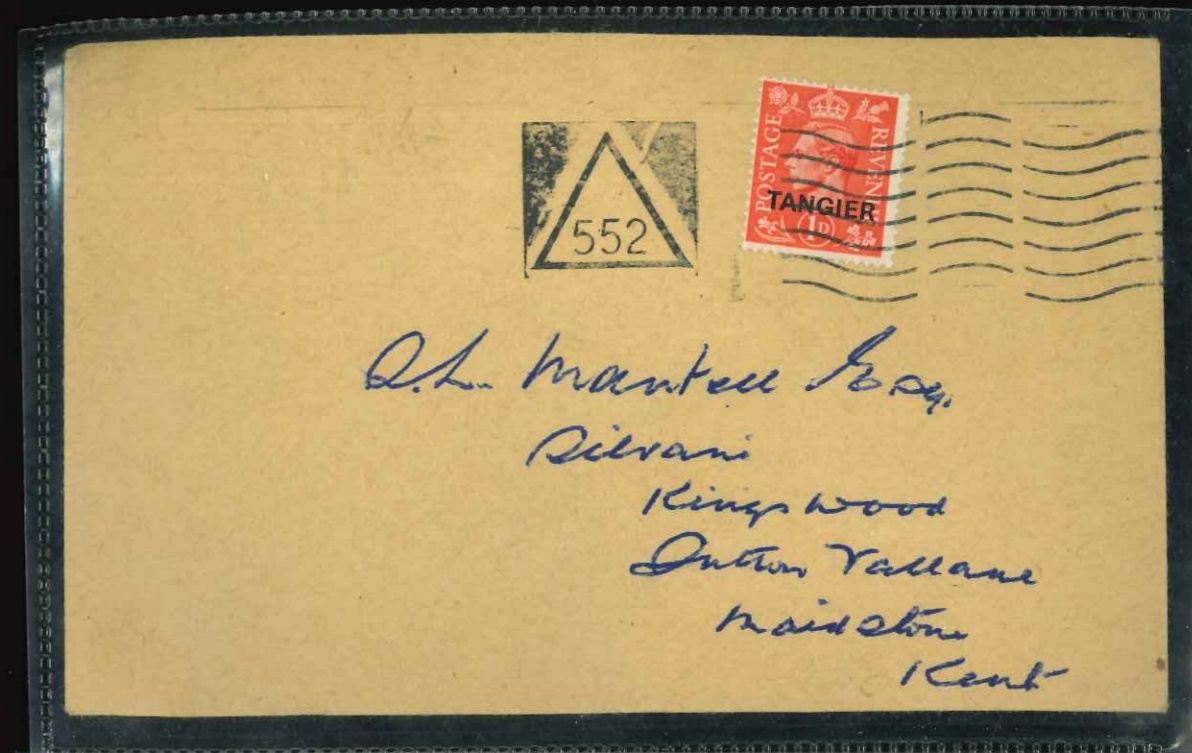 POSTAGE REVENUE
TANGIER
1D
552
Mantell Esq.
Silvani
Kingswood
Sutton Vallane
Maidstone
Kent